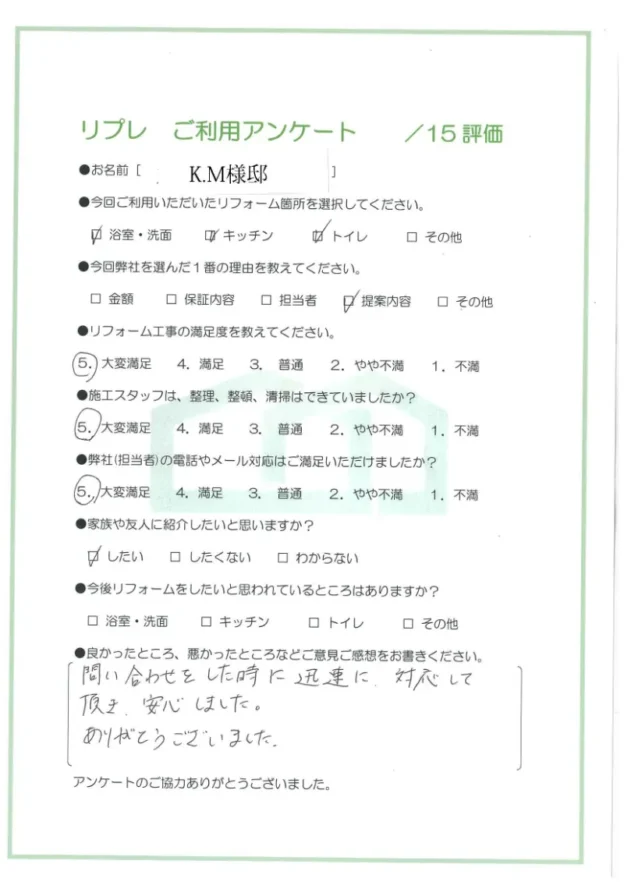 リプレ ご利用アンケート /15評価
●お名前 [ K.M様邸 ]
●今回ご利用いただいたリフォーム箇所を選択してください。
☑ 浴室・洗面 ☑ キッチン ☑ トイレ □ その他
●今回弊社を選んだ1番の理由を教えてください。
□ 金額 □ 保証内容 □ 担当者 ☑ 提案内容 □ その他
●リフォーム工事の満足度を教えてください。
5. 大変満足 4. 満足 3. 普通 2. やや不満 1. 不満
●施工スタッフは、整理、整頓、清掃はできていましたか?
5. 大変満足 4. 満足 3. 普通 2. やや不満 1. 不満
●弊社(担当者)の電話やメール対応はご満足いただけましたか?
5. 大変満足 4. 満足 3. 普通 2. やや不満 1. 不満
●家族や友人に紹介したいと思いますか?
☑ したい □ したくない □ わからない
●今後リフォームをしたいと思われているところはありますか?
□ 浴室・洗面 □ キッチン □ トイレ □ その他
●良かったところ、悪かったところなどご意見ご感想をお書きください。
問い合わせをした時に迅速に、対応して
頂き、安心しました。
ありがとうございました。
アンケートのご協力ありがとうございました。